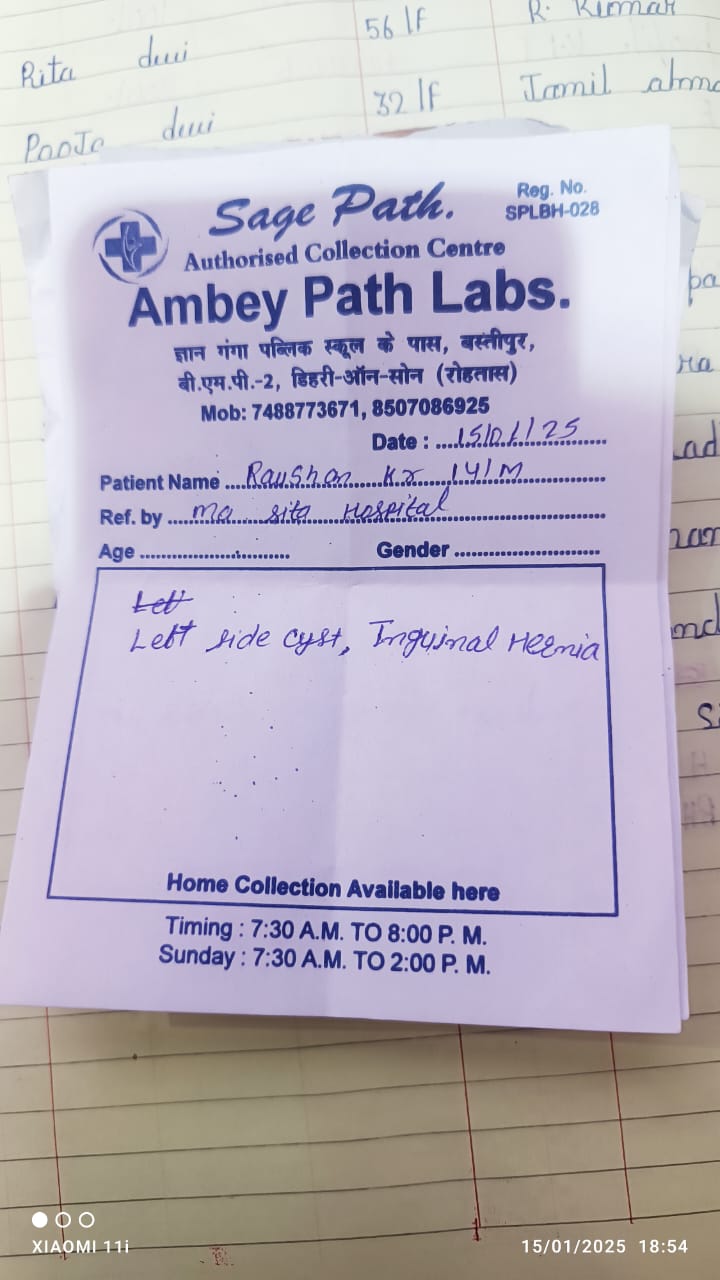 Rita devi 56/F R. Kumar
Pooja devi 32/F Jamil ahma
Sage Path.
Reg. No.
SPLBH-028
Authorised Collection Centre
Ambey Path Labs.
ज्ञान गंगा पब्लिक स्कूल के पास, बस्तीपुर,
बी.एम.पी.-2, डिहरी-ऑन-सोन (रोहतास)
Mob: 7488773671, 8507086925
Date : ....15/01/25......
Patient Name ....Raushan Kr 14/M......
Ref. by ......ma sita Hospital......
Age ........................... Gender ..........................
Left
Left side cyst, Inguinal Hernia
Home Collection Available here
Timing : 7:30 A.M. TO 8:00 P. M.
Sunday : 7:30 A.M. TO 2:00 P. M.
XIAOMI 11i
15/01/2025 18:54